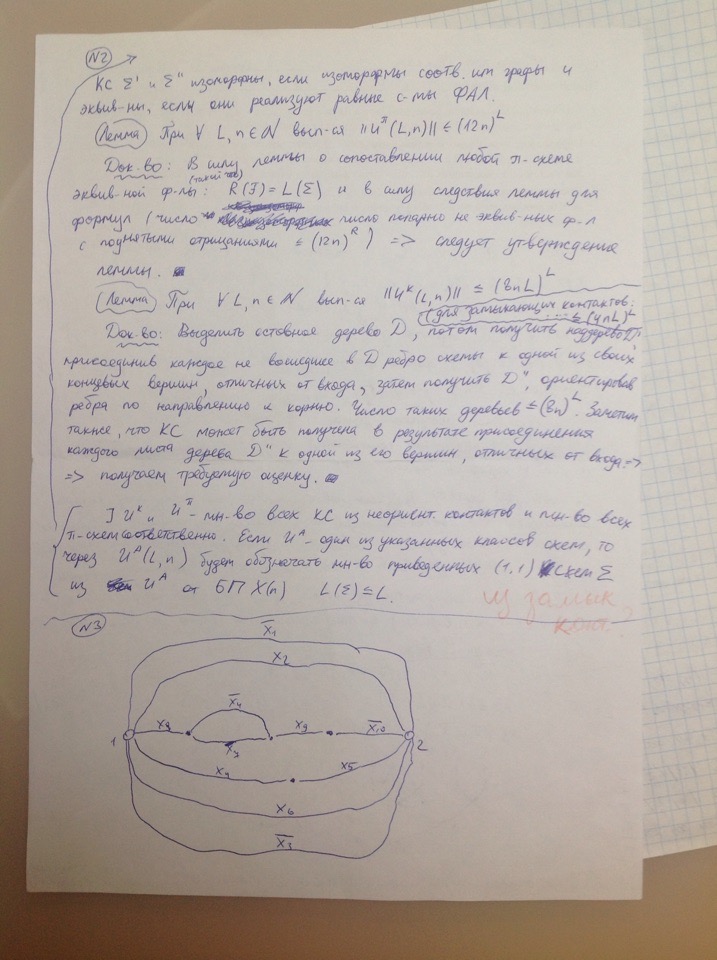 N2
КС Σ' и Σ" изоморфны, если изоморфны соотв. им графы и
эквив-ны, если они реализуют равные с-мы ФАЛ.
Лемма При ∀ L, n ∈ N вып-ся ||U^π(L,n)|| ≤ (12n)^L
Док-во: В силу леммы о сопоставлении любой π-схеме
(такой что)
эквив-ной ф-лы: R(F) = L(Σ) и в силу следствия леммы для
формул (число число попарно не эквив-ных ф-л
с поднятыми отрицаниями ≤ (12n)^R) => следует утверждение
леммы.
Лемма При ∀ L, n ∈ N вып-ся ||U^K(L,n)|| ≤ (8nL)^L
(для замыкающих контактов: ... ≤ (4nL)^L
Док-во: Выделить остовное дерево D, потом получить наддерево D',
присоединив каждое не вошедшее в D ребро схемы к одной из своих
концевых вершин, отличных от входа, затем получить D", ориентировав
ребра по направлению к корню. Число таких деревьев ≤ (8n)^L. Заметим
также, что КС может быть получена в результате присоединения
каждого листа дерева D" к одной из его вершин, отличных от входа =>
=> получаем требуемую оценку.
] U^K и U^π - мн-во всех КС из неориент. контактов и мн-во всех
π-схем соответственно. Если U^A - один из указанных классов схем, то
через U^A(L,n) будем обозначать мн-во приведенных (1,1) схем Σ
из U^A от БП X(n) L(Σ) ≤ L.
из замык
конт.?
N3
x̄1
x2
x̄4
x8 x9 x̄10
1 2
x4 x5
x6
x̄3